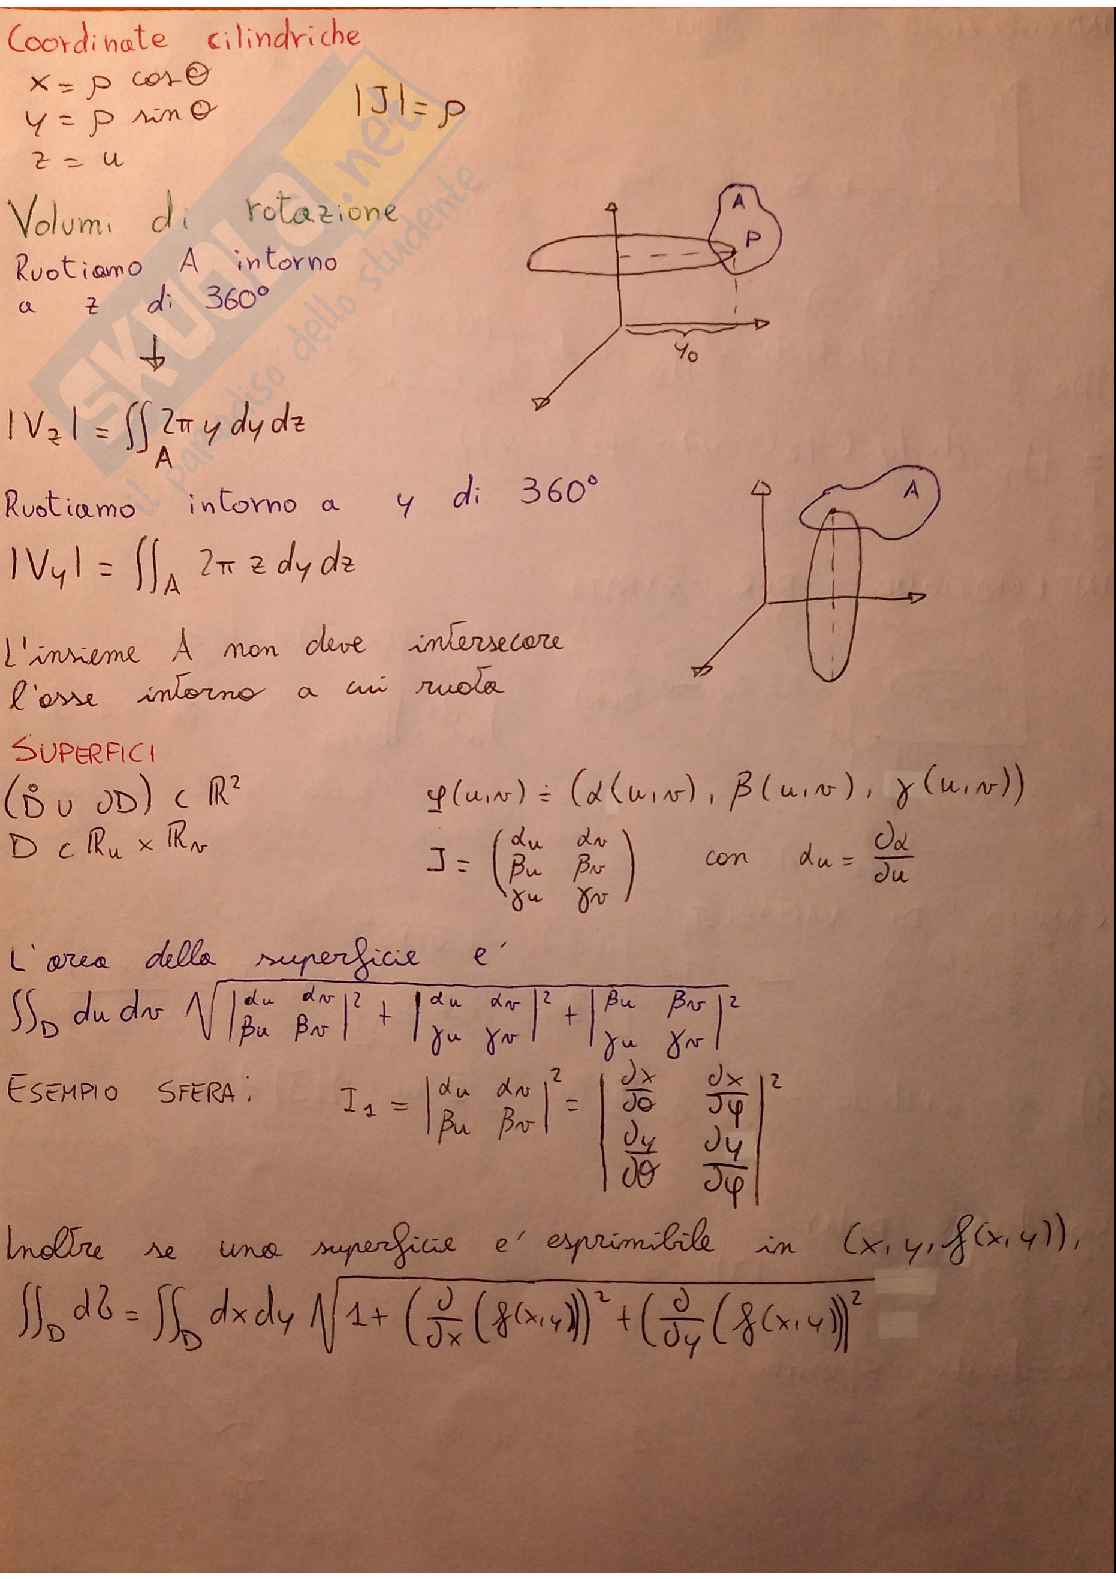 Coordinate cilindriche
x = ρ cos θ
y = ρ sin θ
z = u
|J| = ρ
SKUOLA.net
il paradiso dello studente
Volumi di rotazione
Ruotiamo A intorno
a z di 360°
↓
|V_z| = ∬_A 2π y dy dz
A
P
y₀
Ruotiamo intorno a y di 360°
|V_y| = ∬_A 2π z dy dz
A
L'insieme A non deve intersecare
l'asse intorno a cui ruota
SUPERFICI
(D̊ ∪ ∂D) ⊂ ℝ²
D ⊂ ℝ_u × ℝ_v
φ(u,v) = (α(u,v), β(u,v), γ(u,v))
J = ( α_u α_v
β_u β_v
γ_u γ_v ) con α_u = ∂α/∂u
L'area della superficie e'
∬_D du dv √( |α_u α_v; β_u β_v|² + |α_u α_v; γ_u γ_v|² + |β_u β_v; γ_u γ_v|² )
ESEMPIO SFERA: I₁ = |α_u α_v; β_u β_v|² = |∂x/∂θ ∂x/∂φ; ∂y/∂θ ∂y/∂φ|²
Inoltre se una superficie e' esprimibile in (x, y, f(x,y)),
∬_D dσ = ∬_D dx dy √( 1 + (∂/∂x (f(x,y)))² + (∂/∂y (f(x,y)))² )